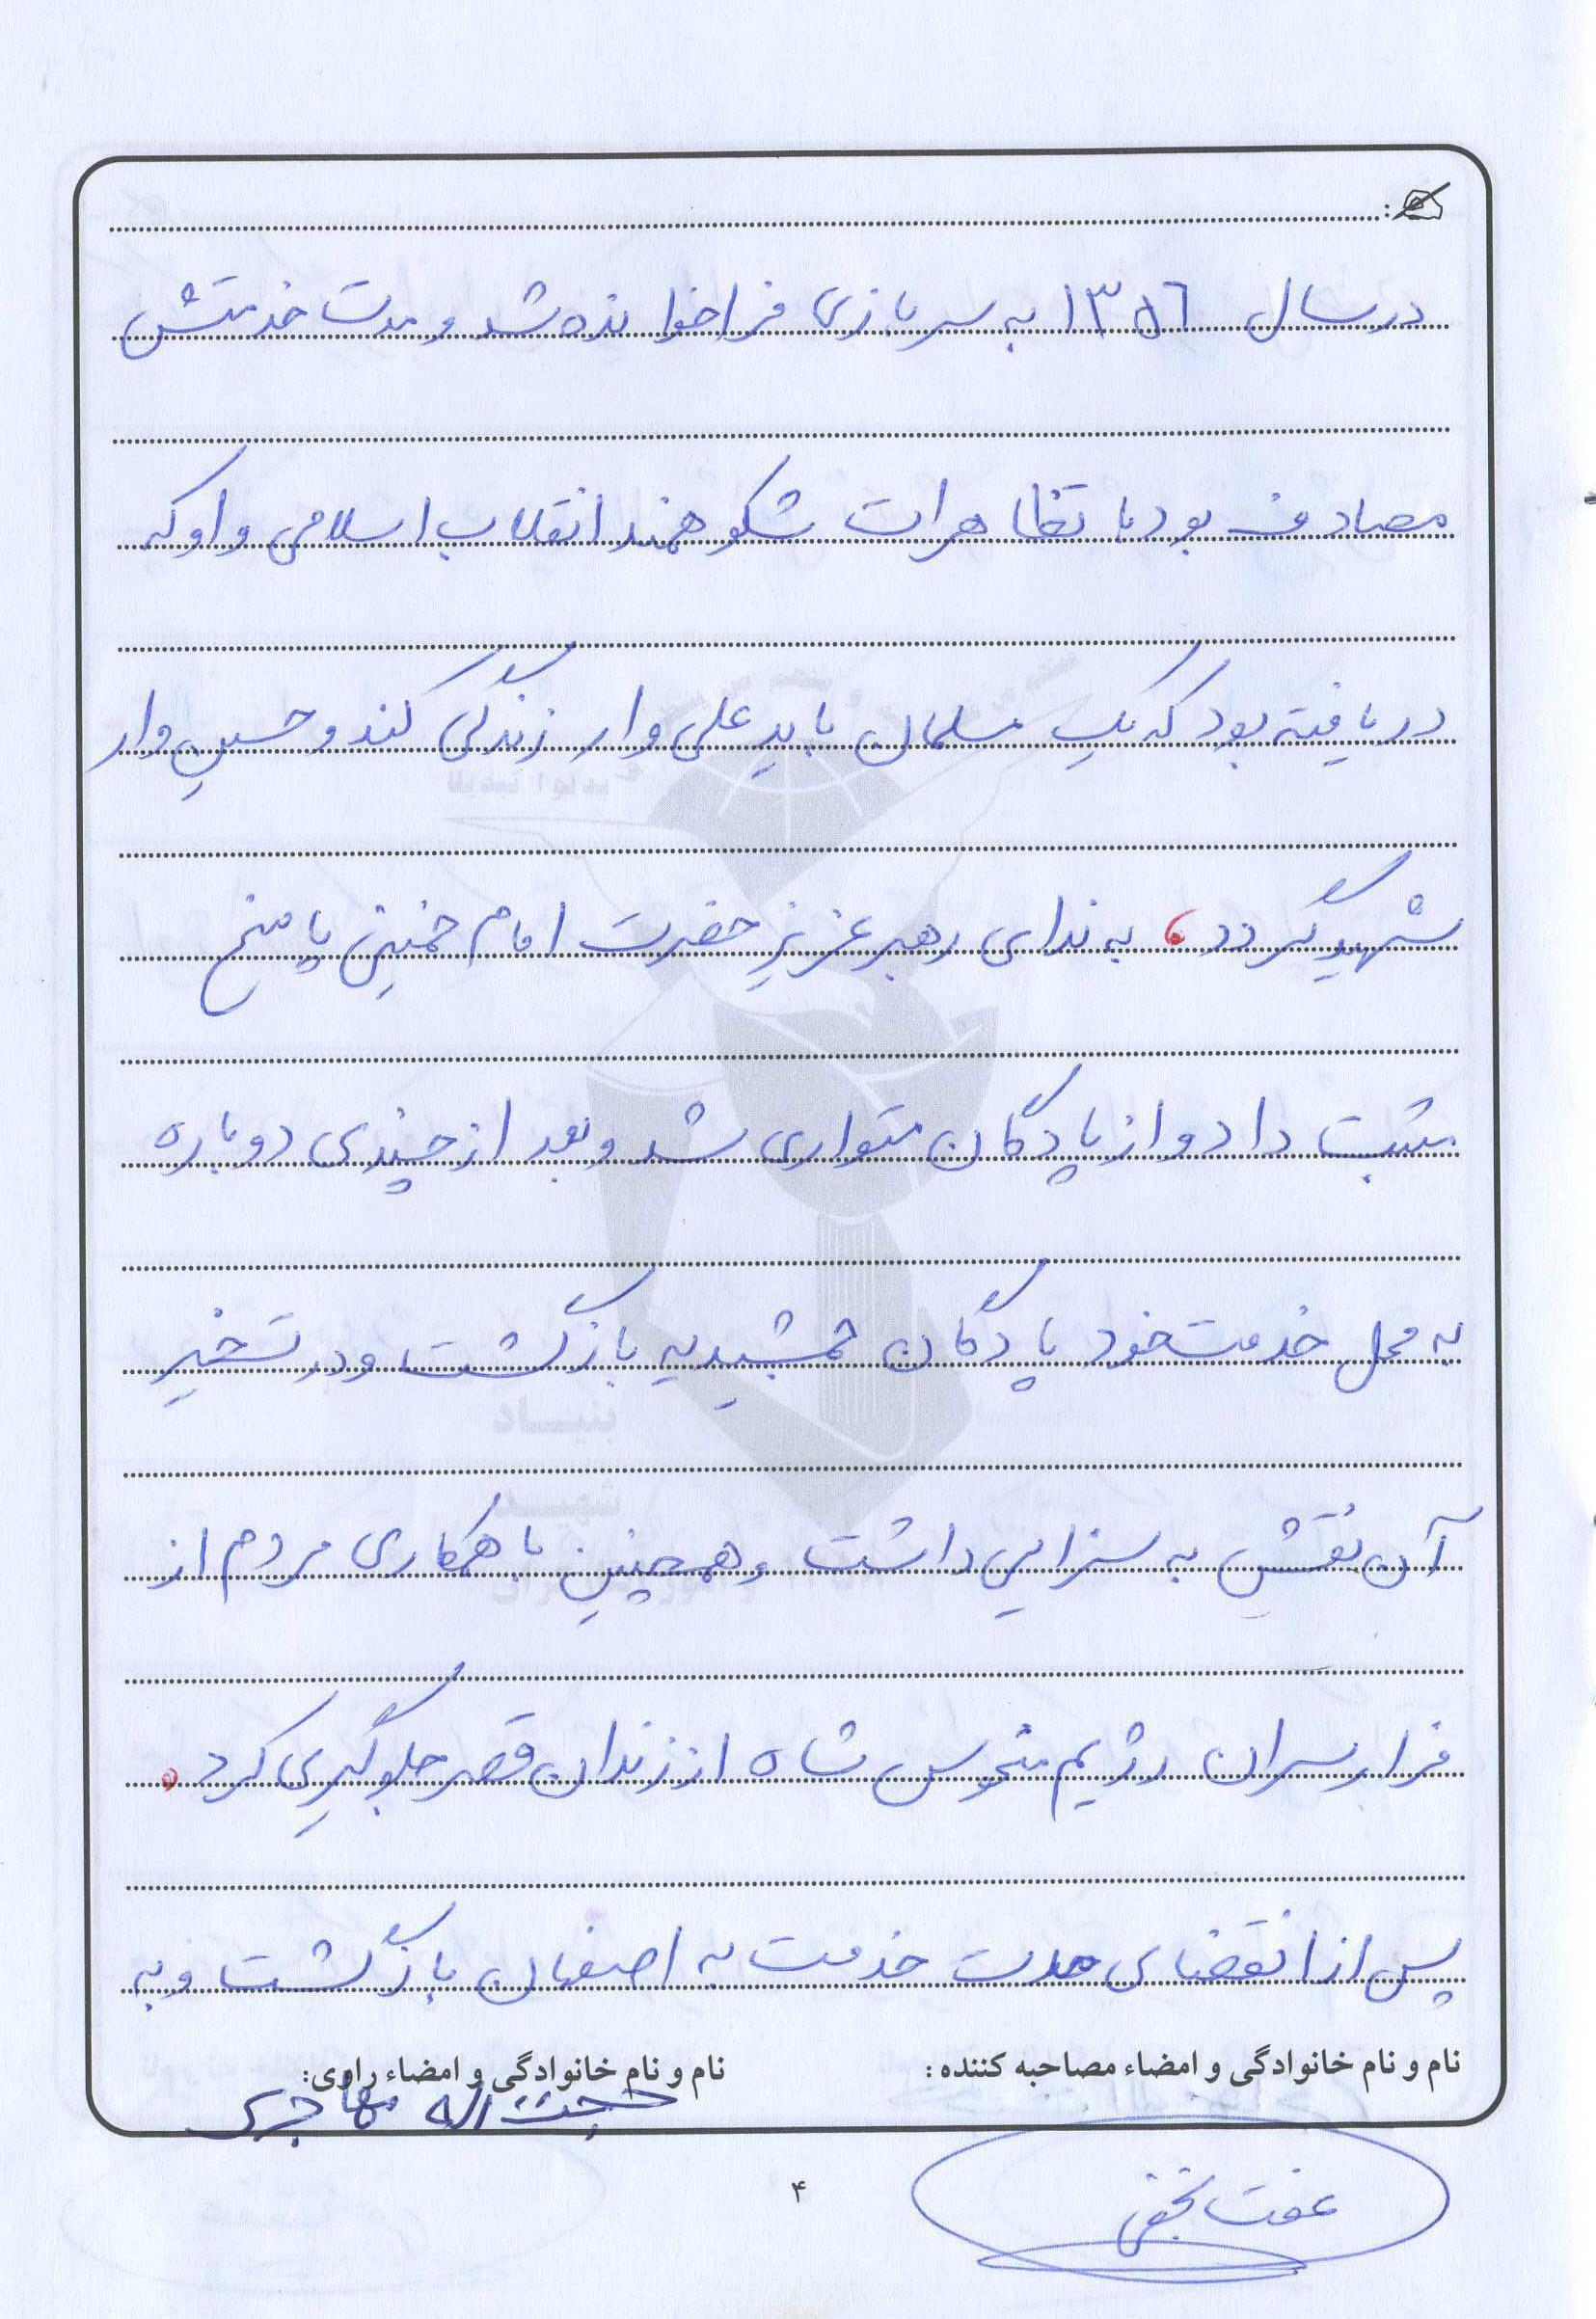 در سال ۱۳۵۶ به سربازی فراخوانده شد و مدت خدمتش
مصادف بود با تظاهرات شکوهمند انقلاب اسلامی و او که
دریافته بود که یک مسلمان باید علی وار زندگی کند و حسین وار
شهید گردد، به ندای رهبر عزیز حضرت امام خمینی پاسخ
مثبت داد و از پادگان متواری شد و بعد از چندی دوباره
به محل خدمت خود پادگان جمشیدیه بازگشت و در تسخیر
آن نقش به سزایی داشت و همچنین با همکاری مردم از
فرار سران رژیم منحوس شاه از زندان قصر جلوگیری کرد.
پس از انقضای مدت خدمت به اصفهان بازگشت و به
نام و نام خانوادگی و امضاء مصاحبه کننده: نام و نام خانوادگی و امضاء راوی:
حجت اله مهاجری
عفت نجفی
۴